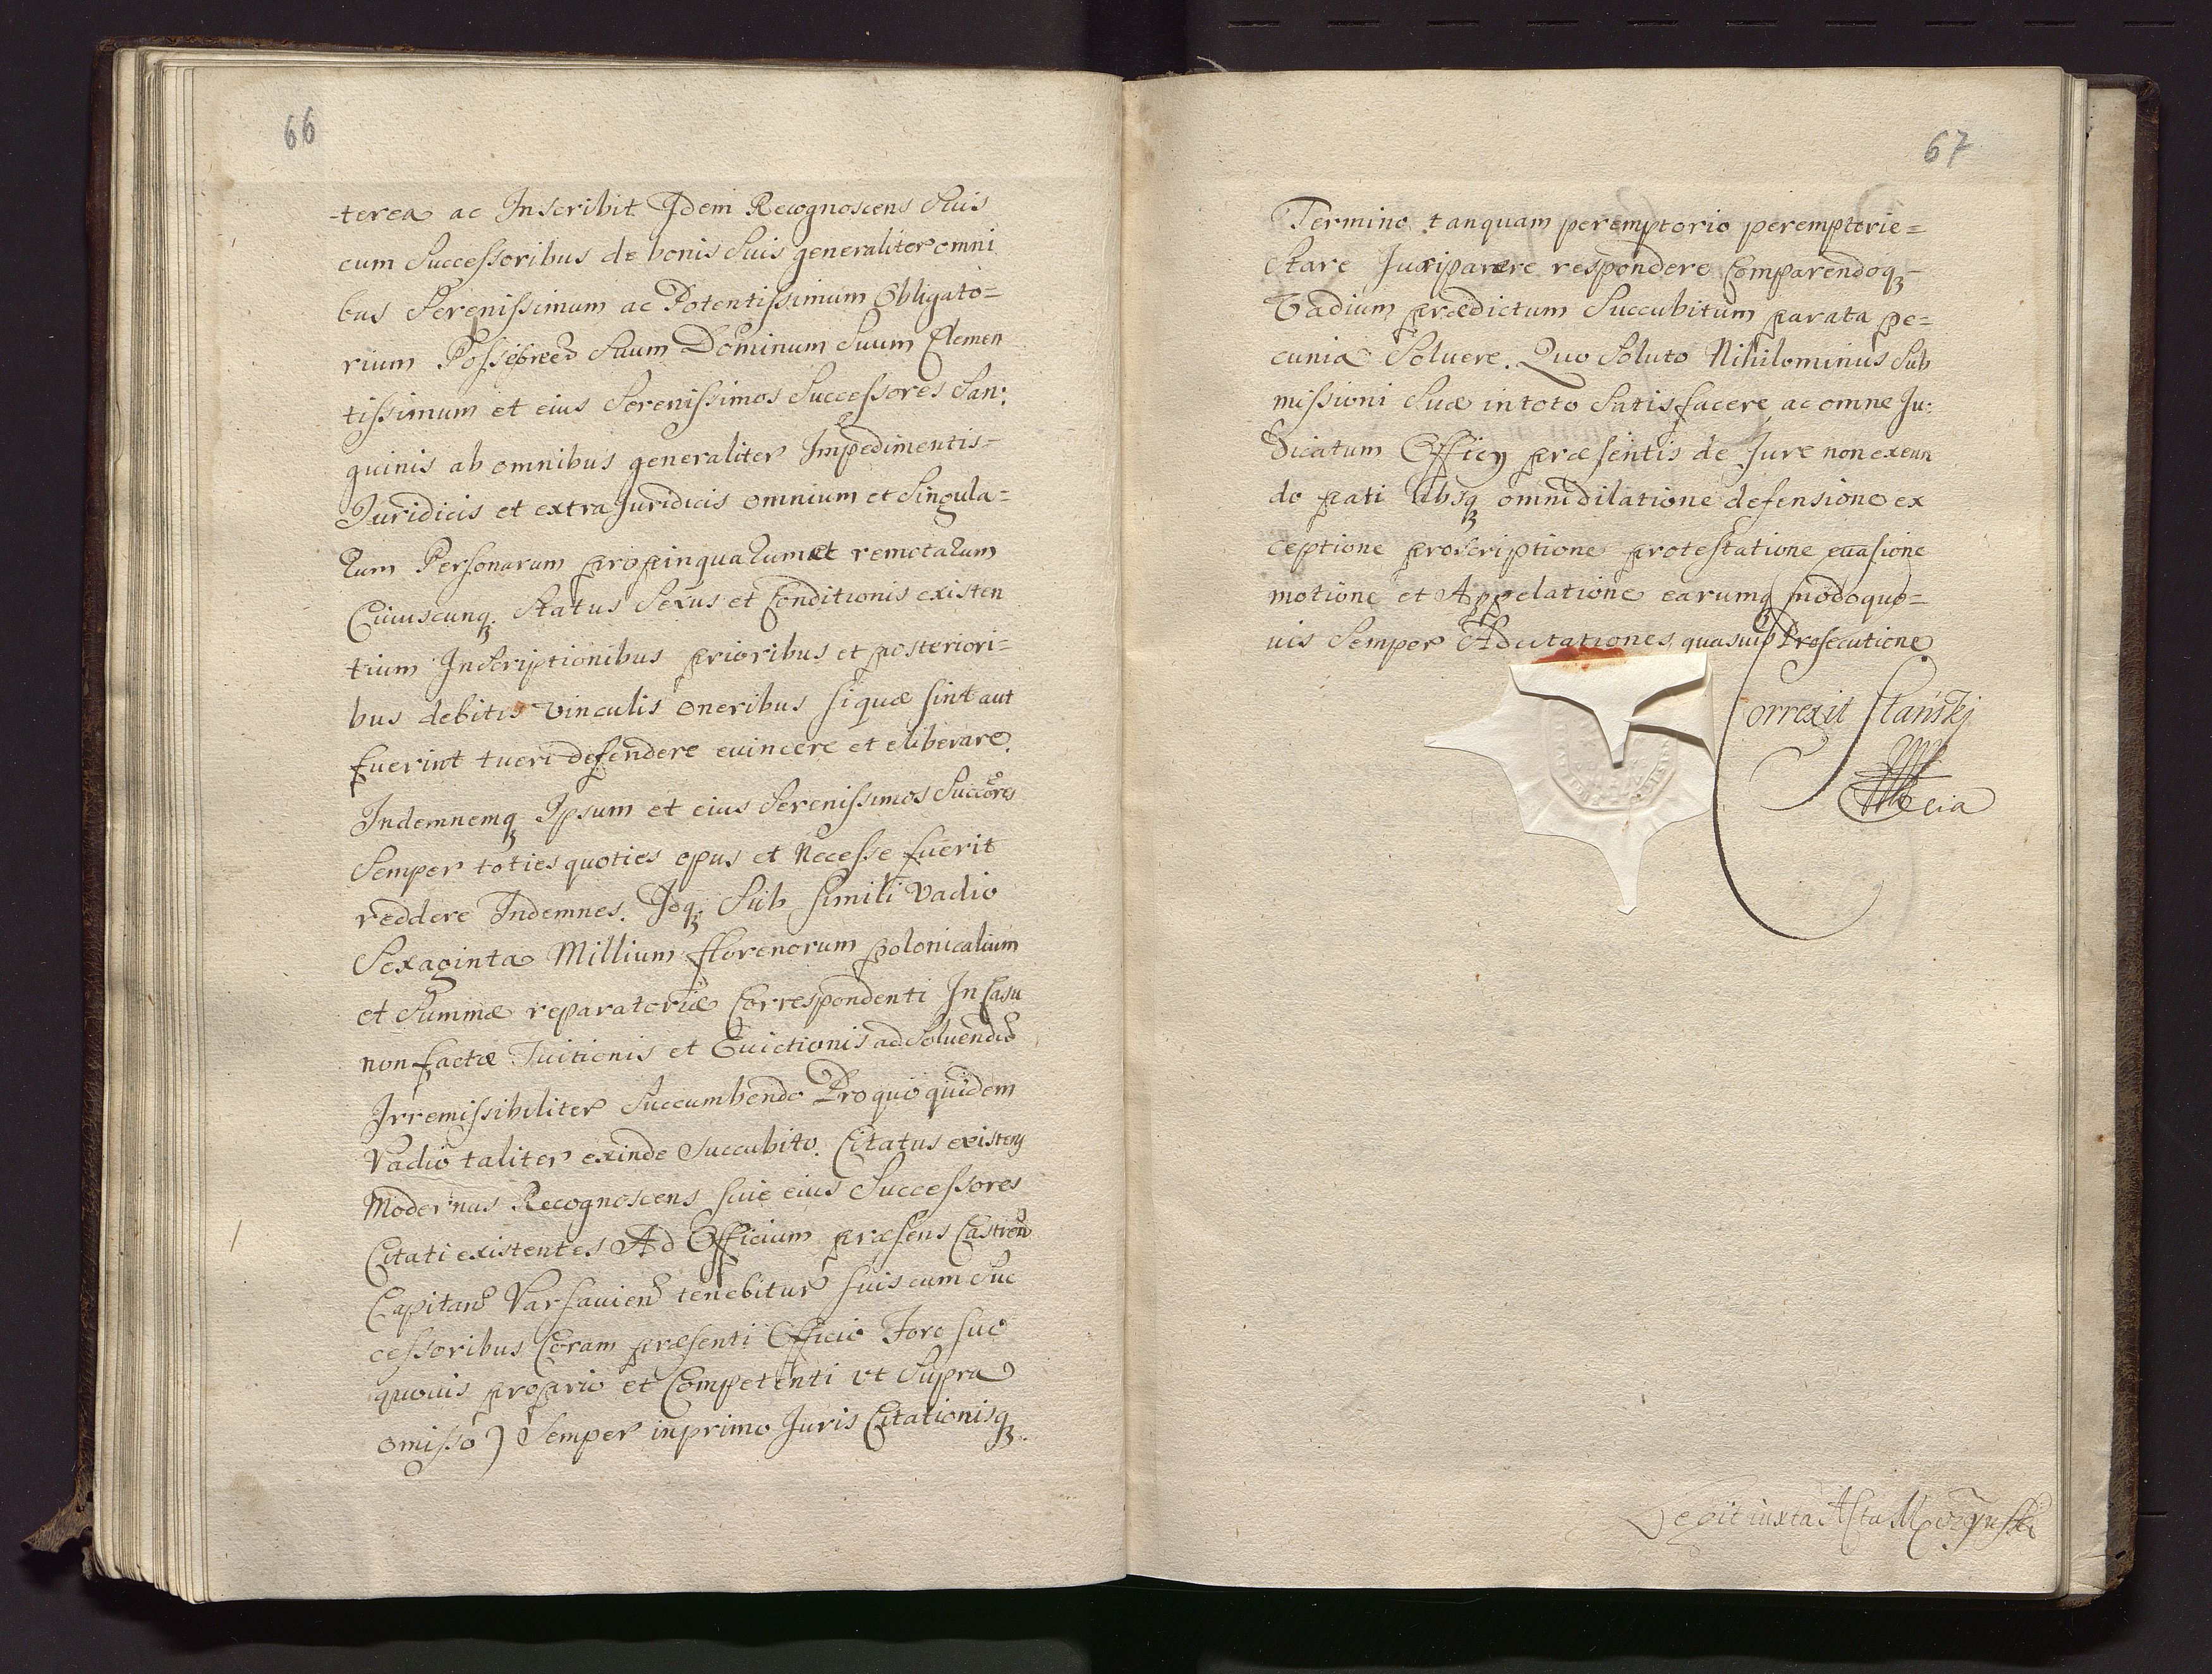 66
-terea ac Inscribit Idem Recognoscens Suis
cum Successoribus de bonis Suis generaliter omni
bus Serenissimum ac Potentissimum Obligato=
rium Suum Dominum Suum Clemen
tissimum et eius Serenissimos Successores San:
guinis ab omnibus generaliter Impedimentis=
Iuridicis et extra Juridicis omnium et Singula=
rum Personarum propinquarum et remotarum
Cuiuscunq. Status Sexus et Conditionis existen
tium Inscriptionibus prioribus et posteriori=
bus debitis vinculis oneribus si quæ sint aut
fuerint tueri defendere euincere et eliberare.
Indemnemq Ipsum et eius Serenissimos Succōres
Semper toties quoties opus et Necesse fuerit
reddere Indemnes. Idq. Sub simili Vadio
Sexaginta Millium florenorum polonicalium
et Summæ reparatoriæ Correspondenti In Casu
non factæ Tuitionis et Euictionis ad Soluendū
Irremissibiliter Succumbendo Pro quo quidem
Vadio taliter exinde Succubito. Citatus existens
Modernus Recognoscens siue eius Successores
Citati existentes Ad Officium præsens Castren
Capitan Varsauien tenebitur suis cum Suc
cessoribus Coram præsenti Officio Foro suo
quouis proprio et Competenti vt Supra
omisso) Semper in primo Juris Citationisq.
67
Termino tanquam peremptorio peremptorie=
Stare Juriparere respondere Comparendoq-
Vadium prædictum Succubitum parata pe=
cunia Soluere. Quo Soluto Nihilominus Sub
missioni Suæ in toto Satisfacere ac omne Ju:
dicatum Officy præsentis de Jure non exeun
do pati absq omni dilatione defensione ex
ceptione proscriptione protestatione euasione
motione et Appelatione earumq modo quo=
uis Semper Adcitationes, quasuis Prosecutione
Correxit Stanskj
Legit iuxta Acta